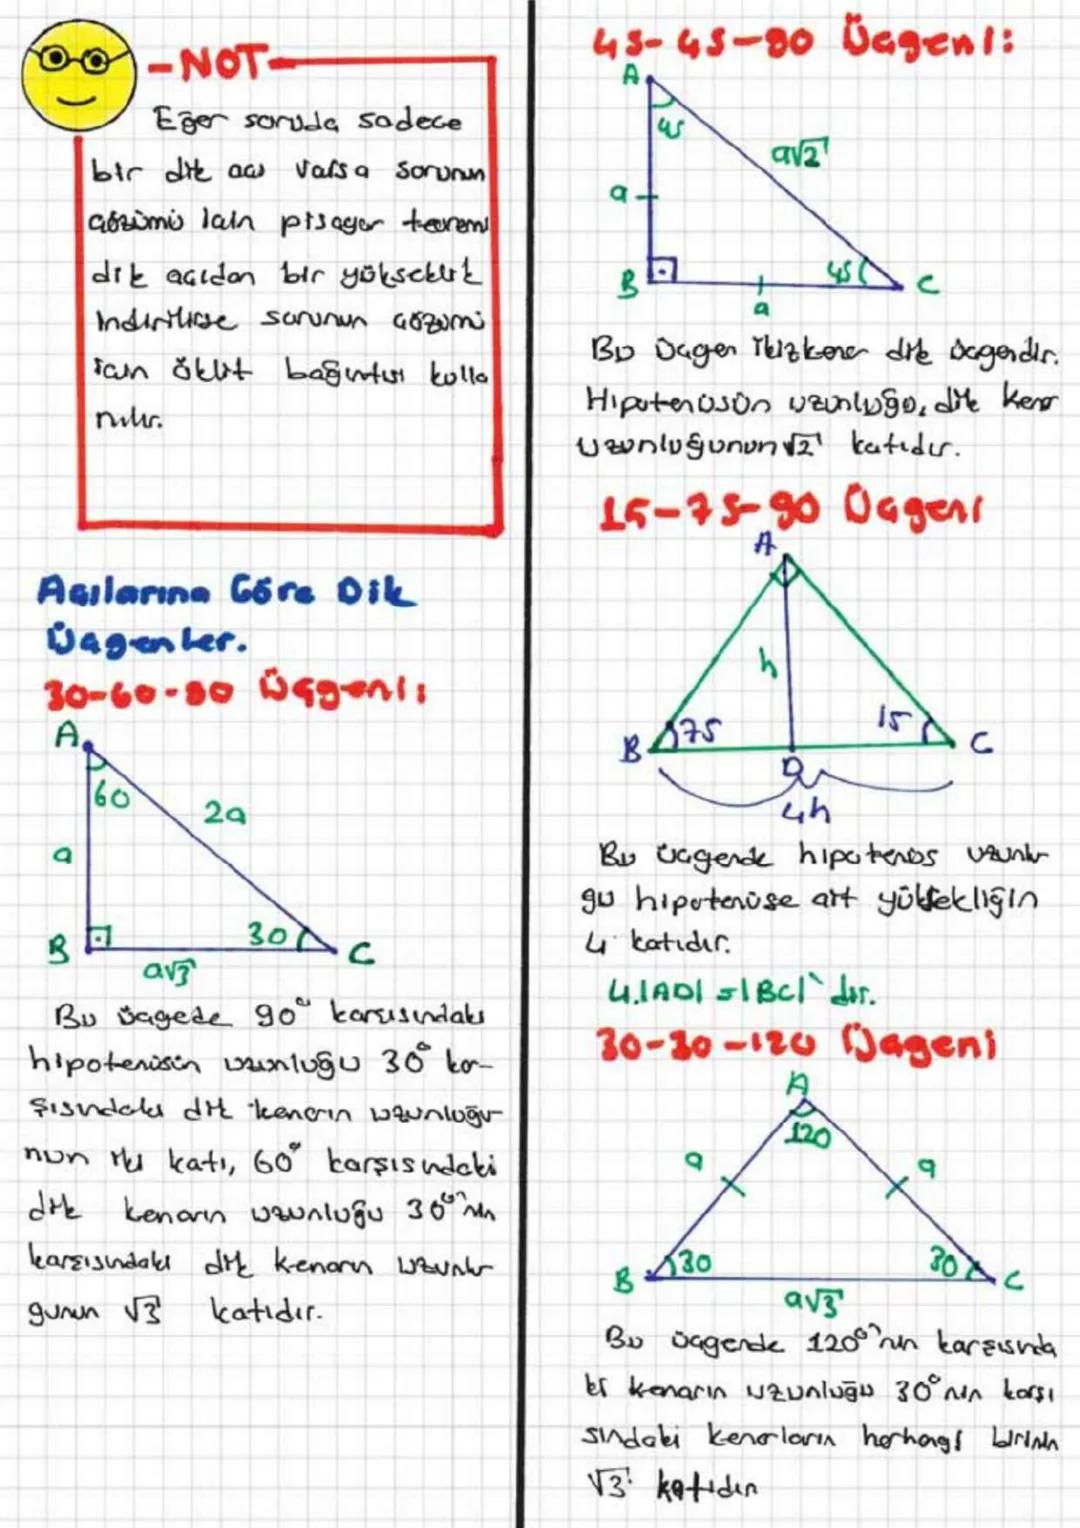 -NOT-
Eğer soruda sadece
bir dik açı varsa sorunun
çözümü için pisagor teoremi
dik açıdan bir yükseklik
indirilirse sorunun çözümü
için öklit bağıntısı kulla
nılır.
Açılarına Göre Dik
Üçgenler.
30-60-90 Üçgeni:
A
60
2a
a
B
30
C
a√3
Bu üçgede 90° karşısındaki
hipotenüsün uzunluğu 30° kar-
şısındaki dik kenarın uzunluğu
nun iki katı, 60° karşısındaki
dik kenarın uzunluğu 30°'nin
karşısındaki dik kenarın uzunlu
ğunun √3 katıdır.
45-45-90 Üçgeni:
A
45
a√2
a
B
45
C
a
Bu üçgen ikizkenar dik üçgendir.
Hipotenüsün uzunluğu, dik kenar
uzunluğunun √2 katıdır.
15-75-90 Üçgeni
A
h
B
75
15
C
D
4h
Bu üçgende hipotenüs uzunlu
ğu hipotenüse ait yüksekliğin
4 katıdır.
4.|AD| = |BC|'dır.
30-30-120 Üçgeni
A
120
a
a
B
30
30
C
a√3
Bu üçgende 120°'nin karşısında
ki kenarın uzunluğu 30°nin karşı
sındaki kenarların herhangi birinin
√3 katıdır